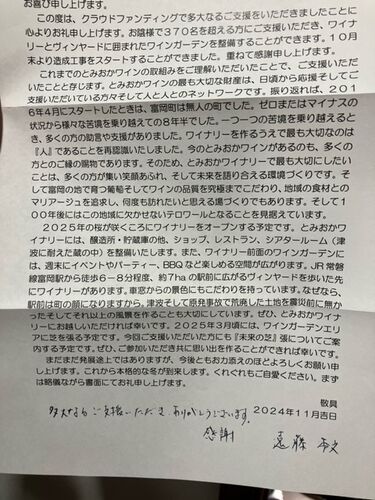 お喜び申し上げます。
この度は、クラウドファンディングで多大なるご支援をいただきましたことに
心よりお礼申し上げます。お陰様で370名を超える方にご支援いただき、ワイナ
リーとヴィンヤードに囲まれたワインガーデンを整備することができます。10月
末より造成工事をスタートすることができました。重ねて感謝申し上げます。
これまでのとみおかワインの取組みをご理解いただいたことで、ご支援いただい
たことと存じます。とみおかワインの最も大切な財産は、日頃から応援そしてご
支援いただいている方々そして人と人とのネットワークです。振り返れば、201
6年4月にスタートしたときは、富岡町は無人の町でした。ゼロまたはマイナスの
状況から様々な苦境を乗り越えての8年半でした。一つ一つの苦境を乗り越えると
き、多くの方の助言や支援がありました。ワイナリーを作るうえで最も大切なのは
『人』であることを再認識いたしました。今のとみおかワインがあるのも、多くの
方とのご縁の賜物であります。そのため、とみおかワイナリーで最も大切にしたい
ことは、多くの方が集い笑顔あふれ、そして未来を語り合える環境づくりです。そ
して富岡の地で育つ葡萄そしてワインの品質を究極までこだわり、地域の食材との
マリアージュを追求し、何度も訪れたいと思える場づくりでもあります。そして1
00年後にはこの地域に欠かせないテロワールとなることを見据えています。
2025年の桜が咲くころにワイナリーをオープンする予定です。とみおかワ
イナリーには、醸造所・貯蔵庫の他、ショップ、レストラン、シアタールーム（津
波に耐えた蔵の中）を整備いたします。また、ワイナリー前面のワインガーデン
には、週末にイベントやパーティー、BBQなど楽しめる空間が広がります。JR常磐
線富岡駅から徒歩6－8分程度、約7haの駅前に広がるヴィンヤードを歩いた先
にワイナリーがあります。車窓からの景色にもこだわりを持っています。なぜなら、
駅前は町の顔になりますから。津波そして原発事故で荒廃した土地を震災前に無か
ったそしてそれ以上の風景を作ることも大切にしています。ぜひ、とみおかワイナ
リーにお越しいただければ幸いです。2025年3月頃には、ワインガーデンエリ
アに芝を張る予定です。今回ご支援いただいた方にも『未来の芝』張についてご案
内する予定です。ぜひ、ご参加いただき共に思い出を作ることができれば幸いです。
まだまだ発展途上ではありますが、今後ともお力添えのほどよろしくお願い申
し上げます。これから本格的な冬が到来します。くれぐれもご自愛ください。まず
は略儀ながら書面にてお礼申し上げます。
敬具
2024年11月吉日
多大なるご支援いただき、ありがとうございます。
感謝
遠藤